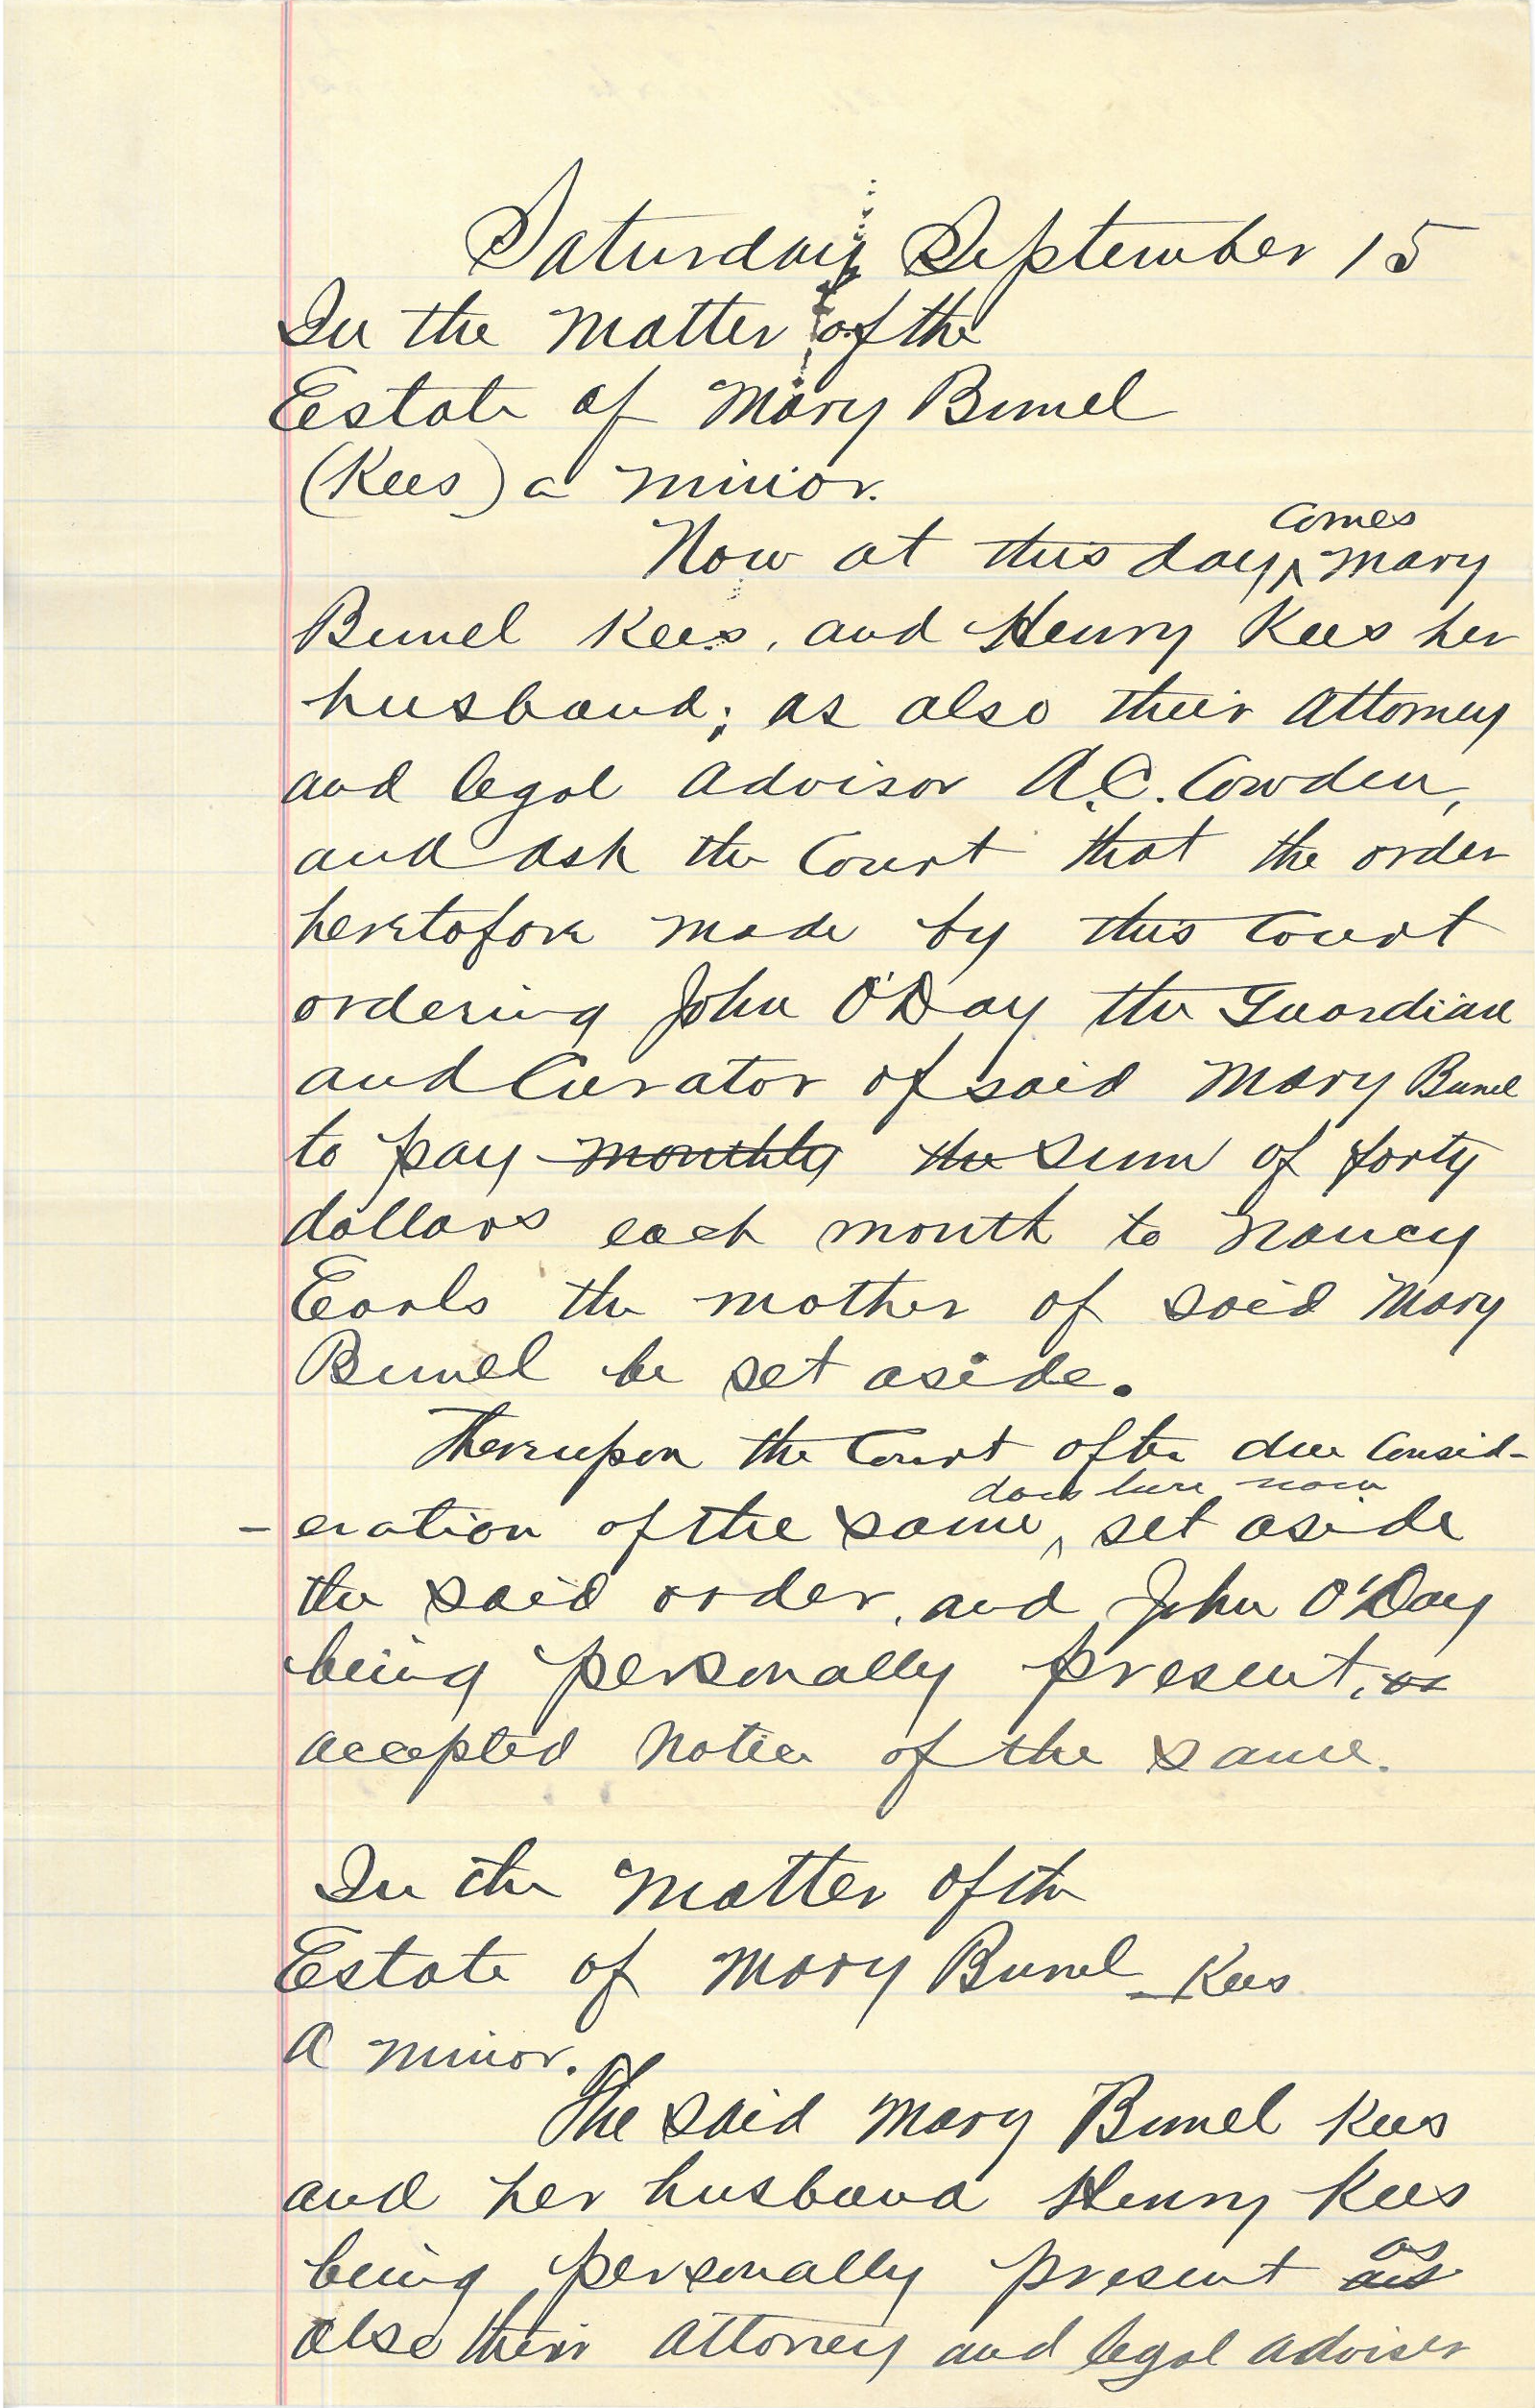 Saturday September 15
In the matter of the
Estate of Mary Bunel
(Kees) a minor.
Now at this day, comes Mary
Bunel Kees, and Henry Kees her
husband; as also their Attorney
and legal advisor A.C. Cowden,
and ask the Court that the order
heretofore made by this Court
ordering John O'Day the Guardian
and Curator of said Mary Bunel
to pay monthly the sum of forty
dollars each month to Nancy
Earls the mother of said Mary
Bunel be set aside.
Thereupon the Court after due Consid-
-eration of the same, does here now set aside
the said order, and John O'Day
being personally present,
accepted notice of the same.
In the matter of the
Estate of Mary Bunel Kees
A minor.
The said Mary Bunel Kees
and her husband Henry Kees
being personally present as
also their Attorney and legal adviser